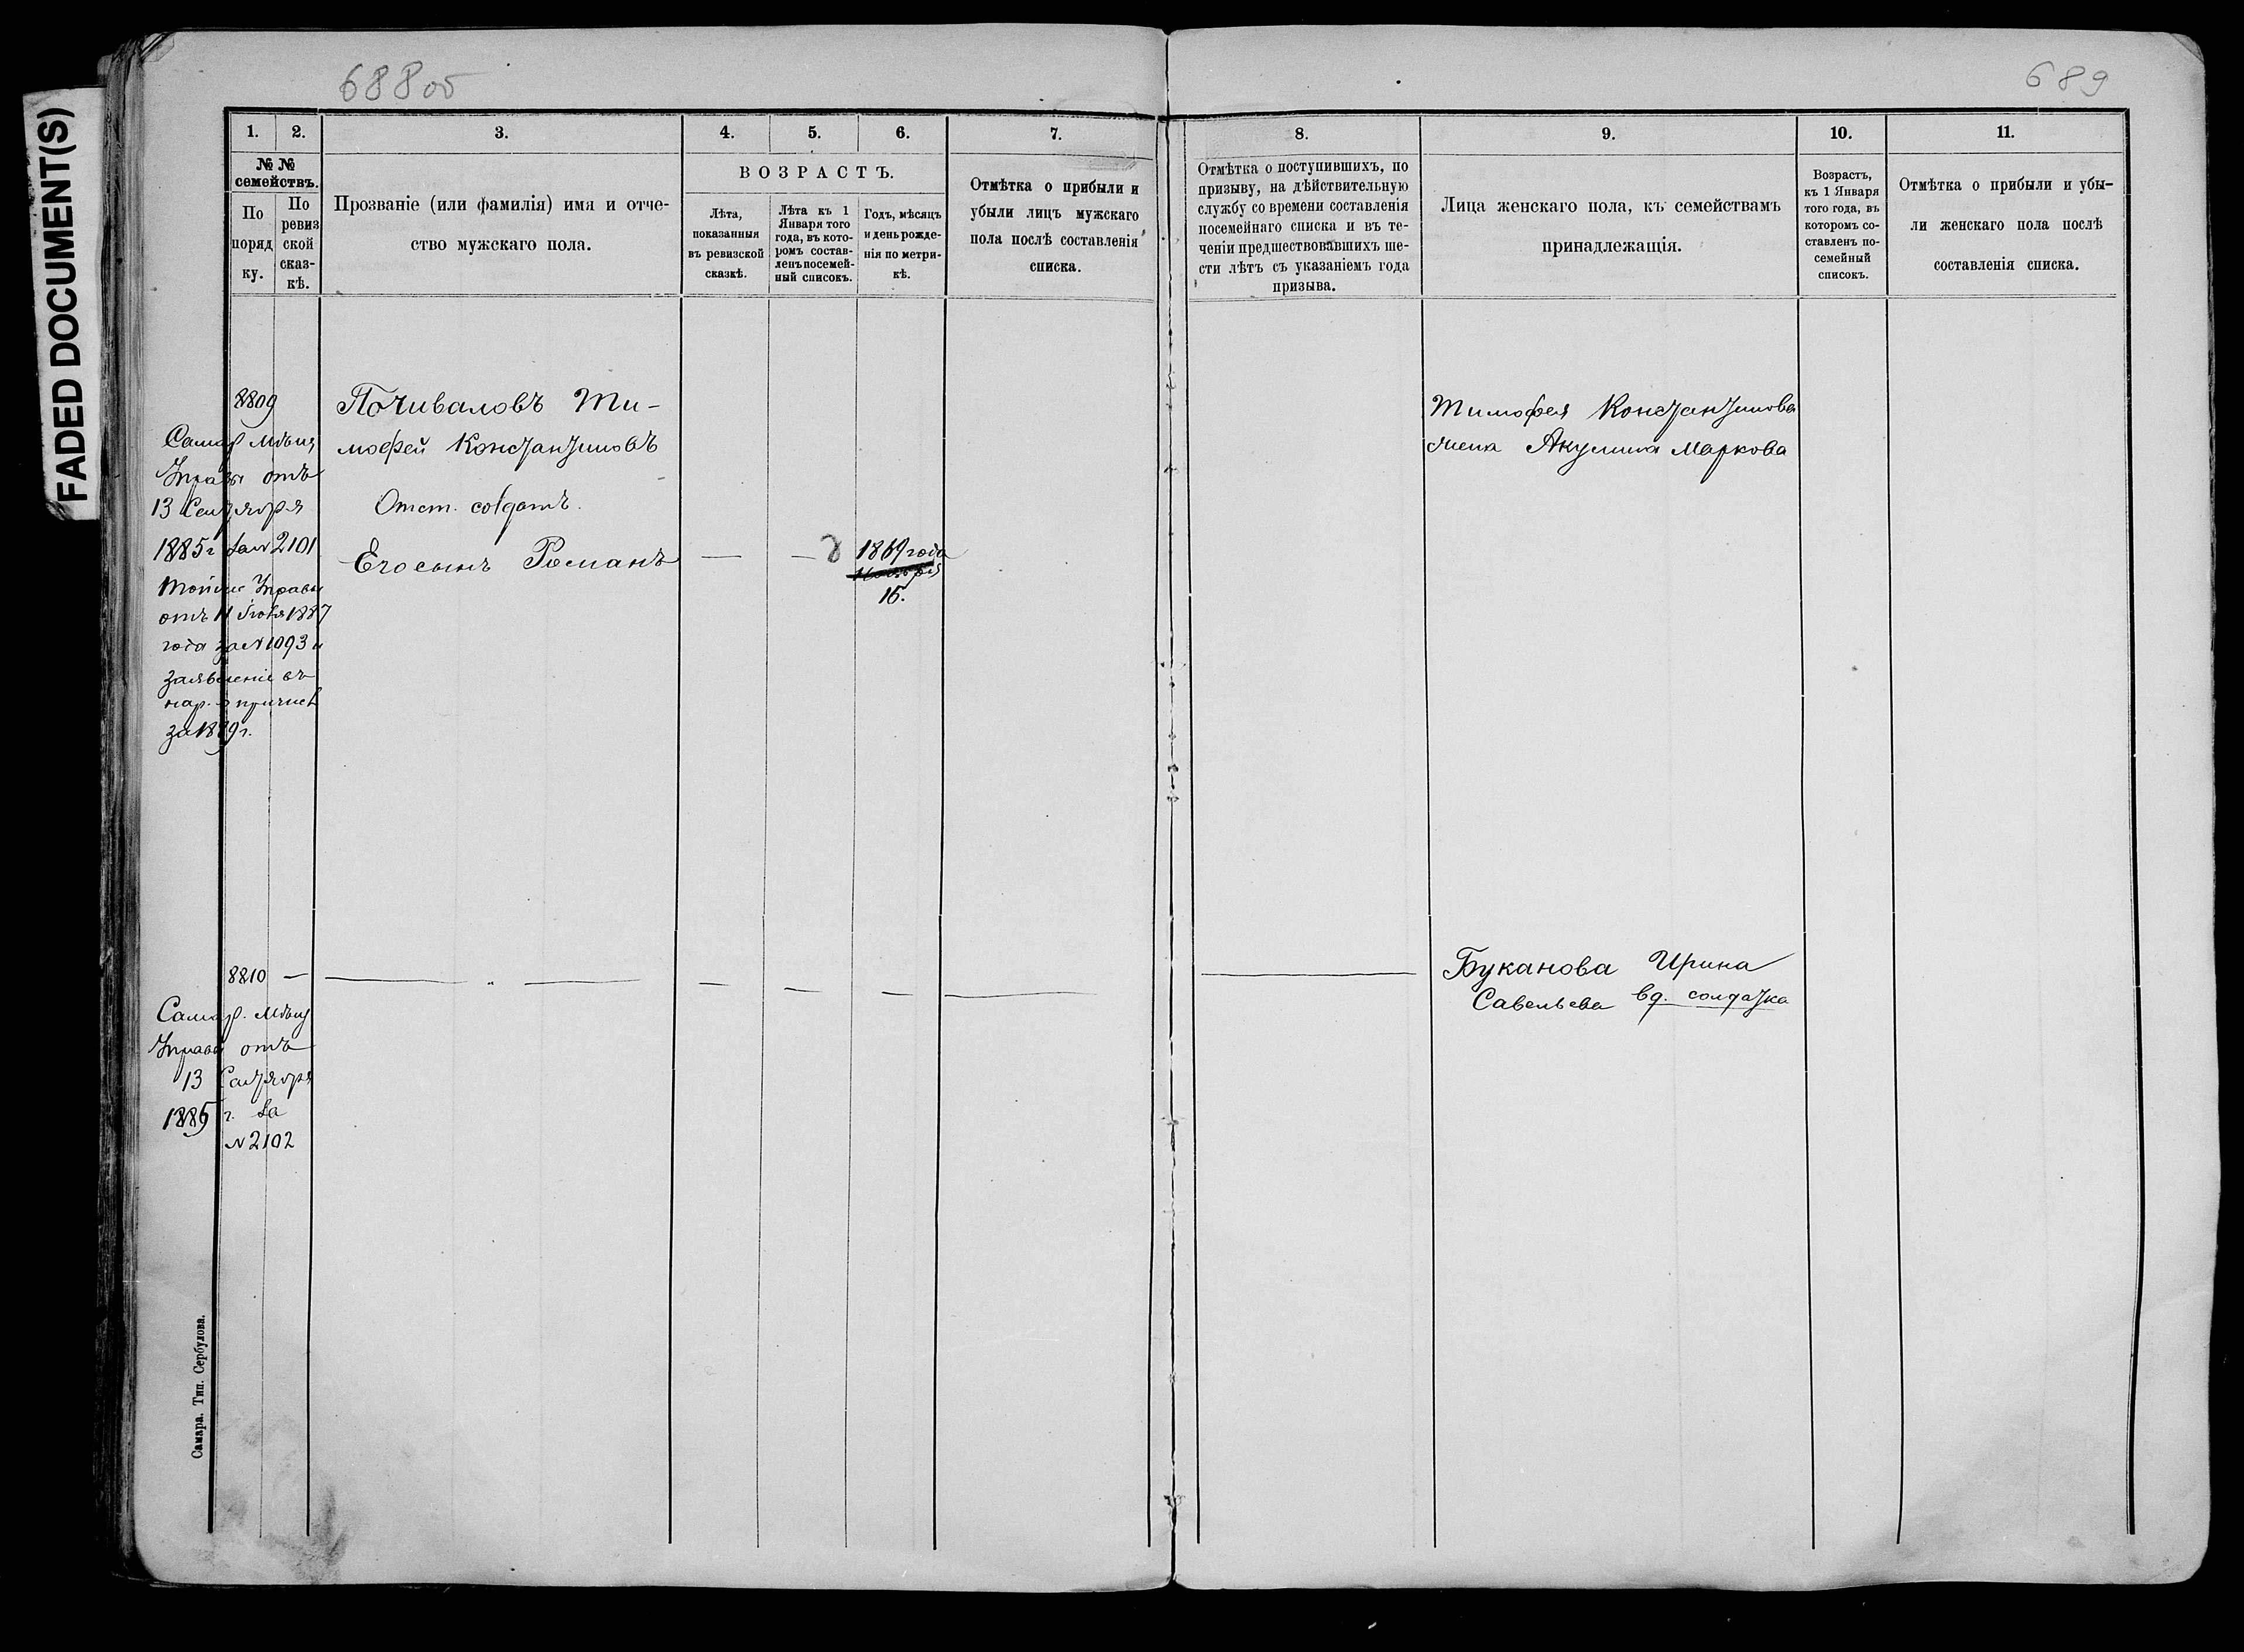 FADED DOCUMENT(S)
688 об
689
1.
2.
3.
4.
5.
6.
7.
8.
9.
10.
11.
№ №
семействъ.
По
поряд
ку.
По
ревиз
ской
сказ-
кѣ.
Прозваніе (или фамилія) имя и отче-
ство мужскаго пола.
ВОЗРАСТЪ.
Лѣта,
показанныя
въ ревизской
сказкѣ.
Лѣта къ 1
Января того
года, въ кото-
ромъ состав-
ленъ посемей-
ный списокъ.
Годъ, мѣсяцъ
и день рожде-
нія по метри-
кѣ.
Отмѣтка о прибыли и
убыли лицъ мужскаго
пола послѣ составленія
списка.
Отмѣтка о поступившихъ, по
призыву, на дѣйствительную
службу со времени составленія
посемейнаго списка и въ те-
ченіи предшествовавшихъ ше-
сти лѣтъ съ указаніемъ года
призыва.
Лица женскаго пола, къ семействамъ
принадлежащія.
Возрастъ,
къ 1 Января
того года, въ
которомъ со-
ставленъ по-
семейный
списокъ.
Отмѣтка о прибыли и убы-
ли женскаго пола послѣ
составленія списка.
8809
Самар мѣщ
Управы отъ
13 Сентября
1885 г за № 2101
Тойже Управы
отъ 11 1887
года за № 1093 и
заявленіе въ
нар.
за 1889 г.
Почиваловъ Ти-
мофей Константиновъ
Отст. солдатъ.
Его сынъ Романъ — —
1869 года
Ноября
15.
Тимофея Константинова
жена Акулина Маркова
8810 —
Самар. мѣщ
Управы отъ
13 Сентября
1885 г. за
№ 2102
Буканова Ирина
Савельева вд. солдатка
Самара. Тип. Сербулова.